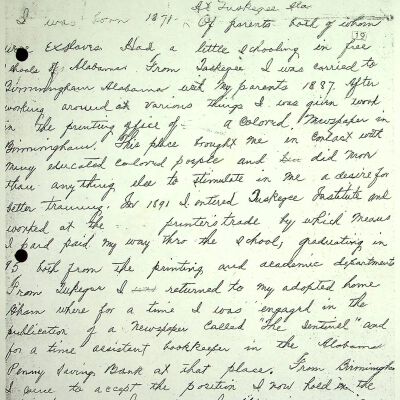 At Tuskegee Ala
I was born 1871 - Of parents both of whom
19
were Exslaves. Had a little schooling in free
schools of Alabama. From Tuskegee I was carried to
Birmingham Alabama with my parents 1887. After
working around at various things I was given work
in the printing office of - a colored Newspaper in
Birmingham. This place brought me in contact with
many educated colored people and did more
than anything else to stimulate in me a desire for
better training. In 1891 I entered Tuskegee Institute and
worked at the printer's trade by which means
I paid my way thro the School, graduating in
95 both from the printing and academic departments
From Tuskegee I returned to my adopted home
Bham where for a time I was engaged in the
publication of a Newspaper called "The Sentinel" and
for a time assistant bookkeeper in the Alabama
Penny Savings Bank at that place. From Birmingham
I came to accept the position I now hold in the